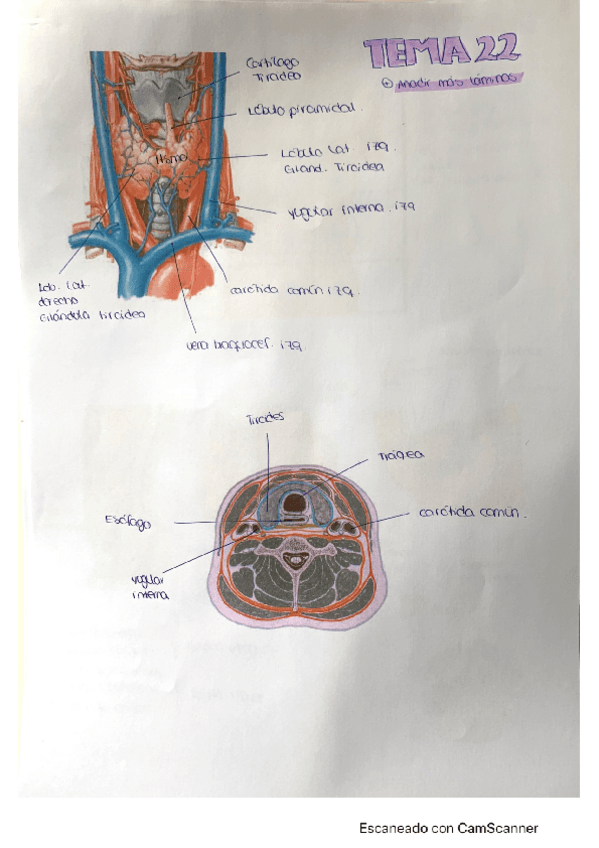 TEMA 22
Añadir más láminas
Cartílago
Tiroideo
Lóbulo piramidal
Istmo
Lóbulo lat. izq.
Gland. Tiroidea
yugular interna. izq
Lob. lat.
derecho
Glándula tiroidea
carótida común izq.
vena braquiocef. izq.
Tiroides
Tráquea
Esófago
carótida común.
yugular
interna
Escaneado con CamScanner